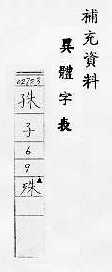 補充資料
異體字表
02753
子
6
9
殊▲